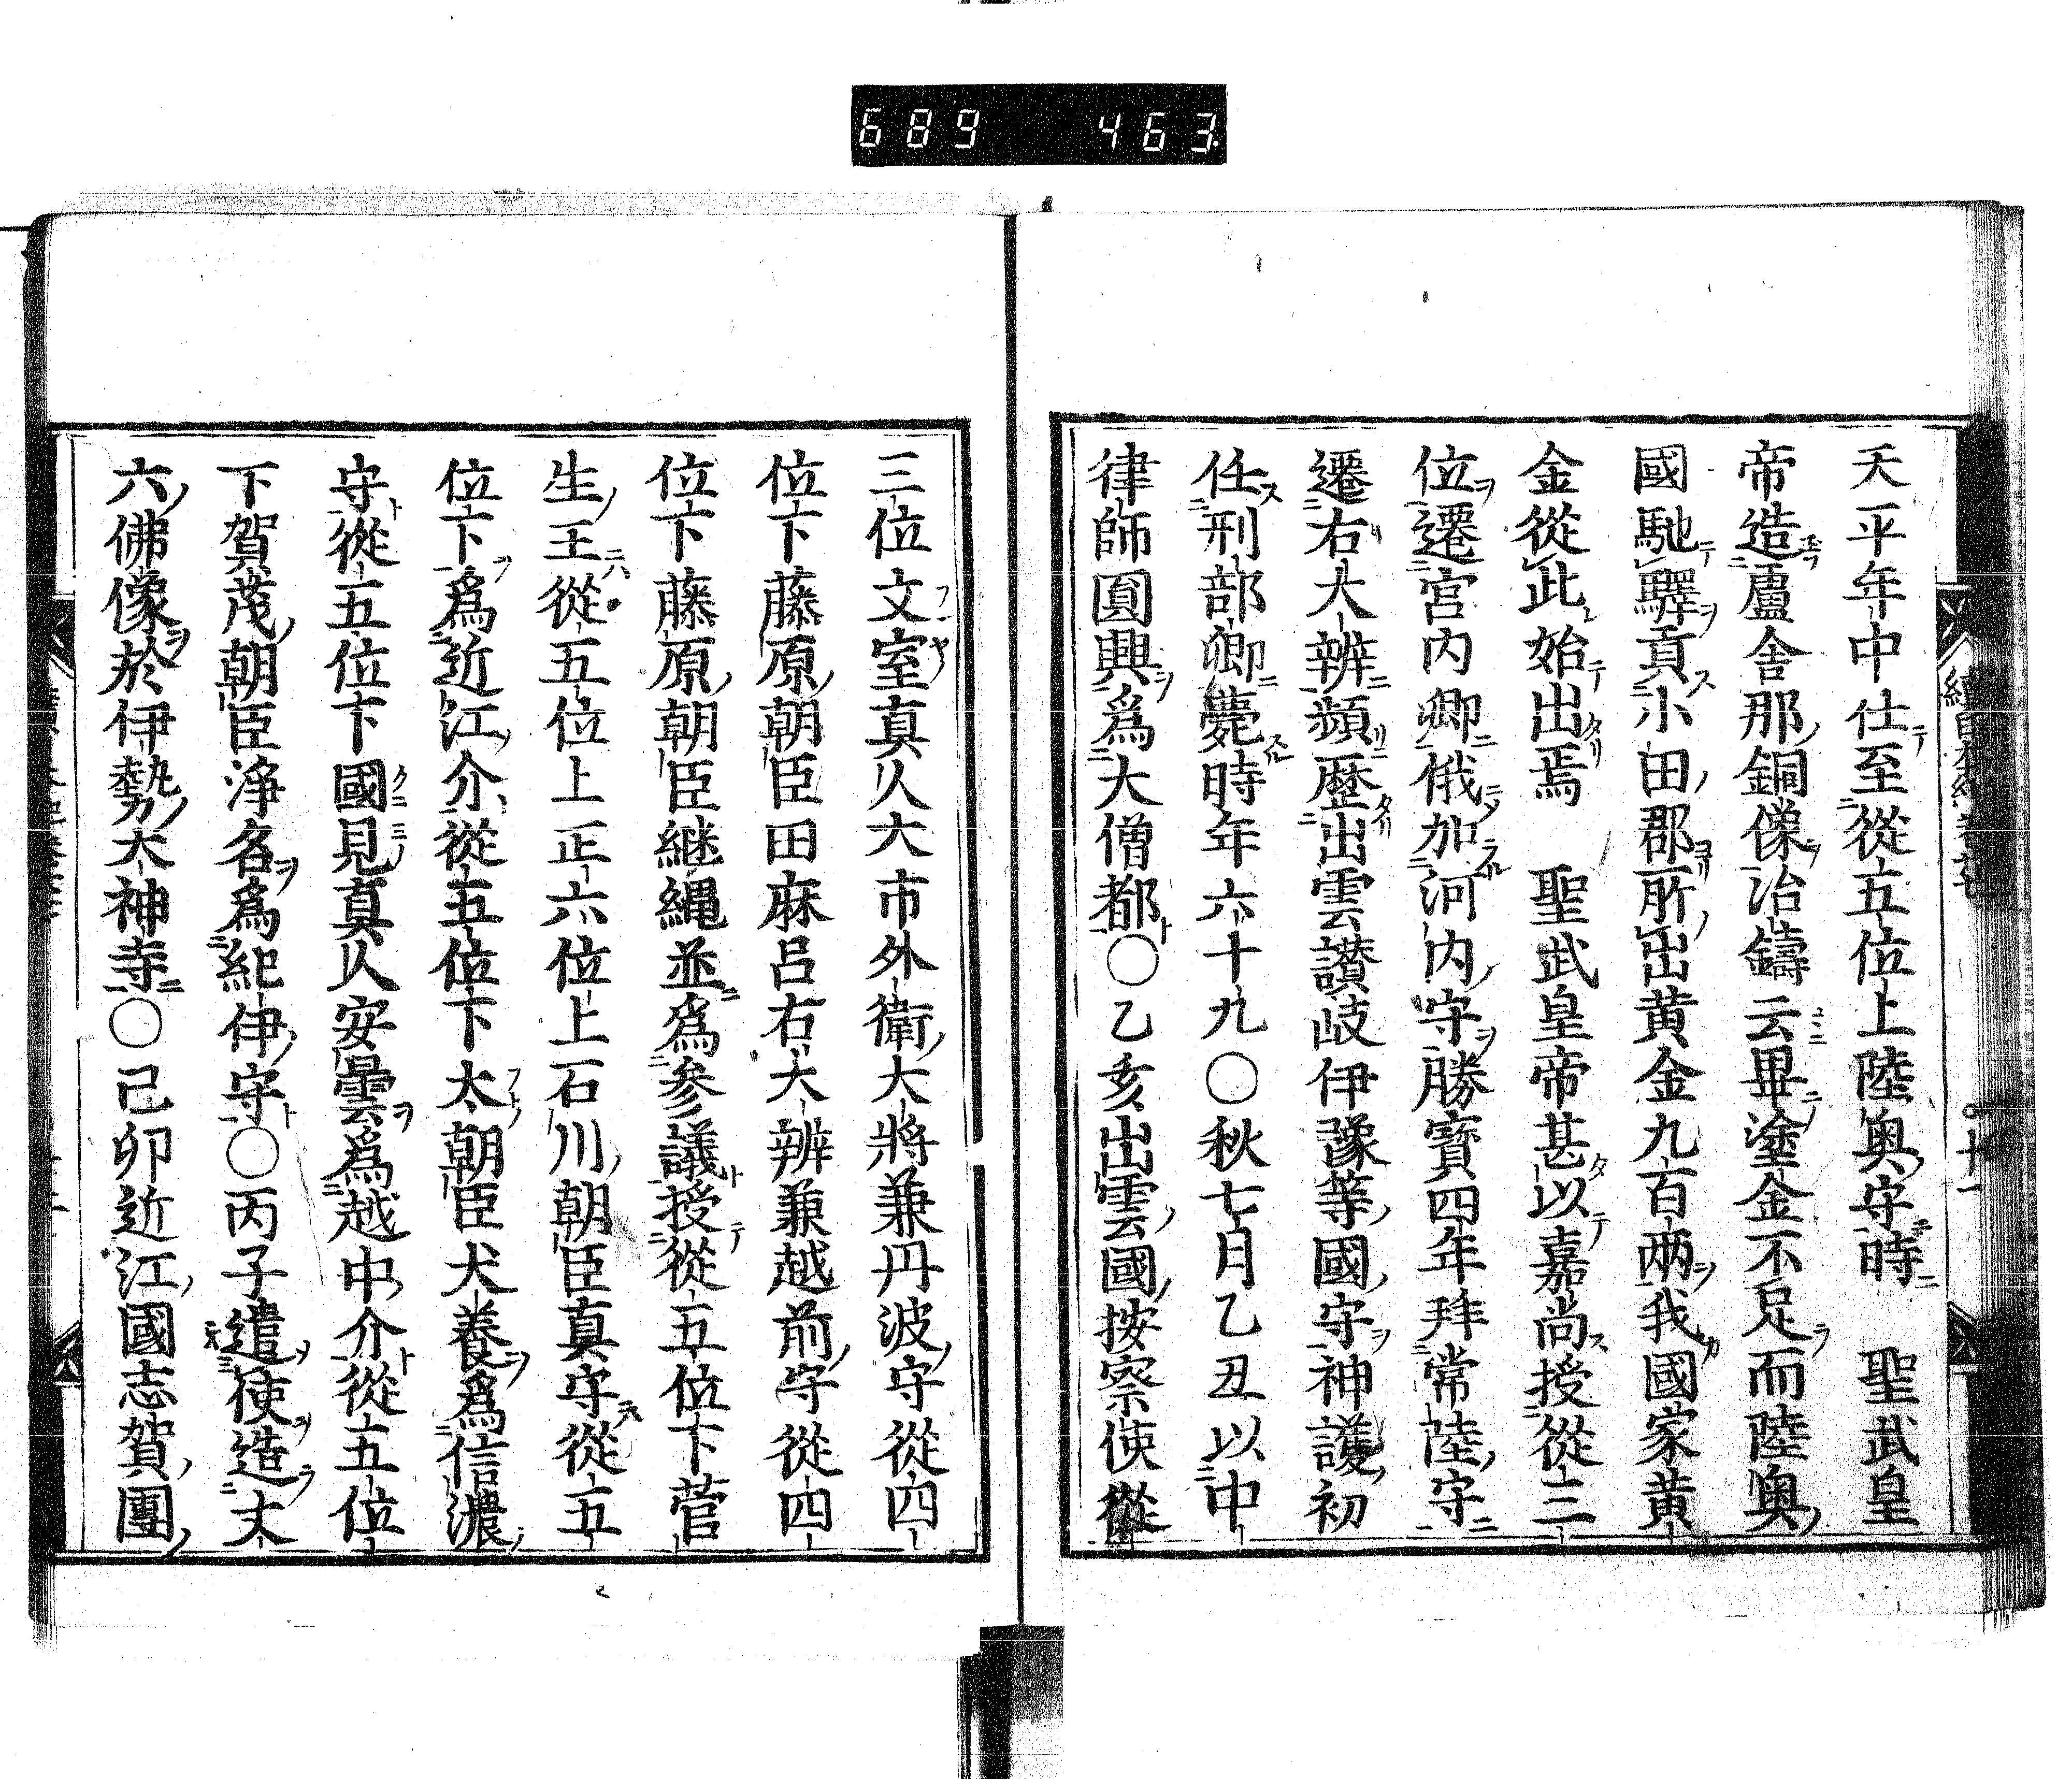 689 463
天平年中仕至從五位上陸奥守時　聖武皇
帝造盧舍那銅像冶鑄云畢塗金不足而陸奥
國馳驛貢小田郡所出黄金九百兩我國家黄
金從此始出焉　聖武皇帝甚以嘉尚授從三
位遷宮内卿俄加河内守勝寶四年拜常陸守
遷右大辨頻歷出雲讃岐伊豫等國守神護初
任刑部卿薨時年六十九〇秋七月乙丑以中
律師圓興爲大僧都〇乙亥出雲國按察使從
三位文室真人大市外衛大將兼丹波守從四
位下藤原朝臣田麻呂右大辨兼越前守從四
位下藤原朝臣継縄並爲參議授從五位下菅
生王從五位上正六位上石川朝臣真守從五
位下爲近江介從五位下太朝臣犬養爲信濃
守從五位下國見真人安曇爲越中介從五位
下賀茂朝臣浄名爲紀伊守〇丙子遣使造丈
六佛像於伊勢大神寺〇己卯近江國志賀團